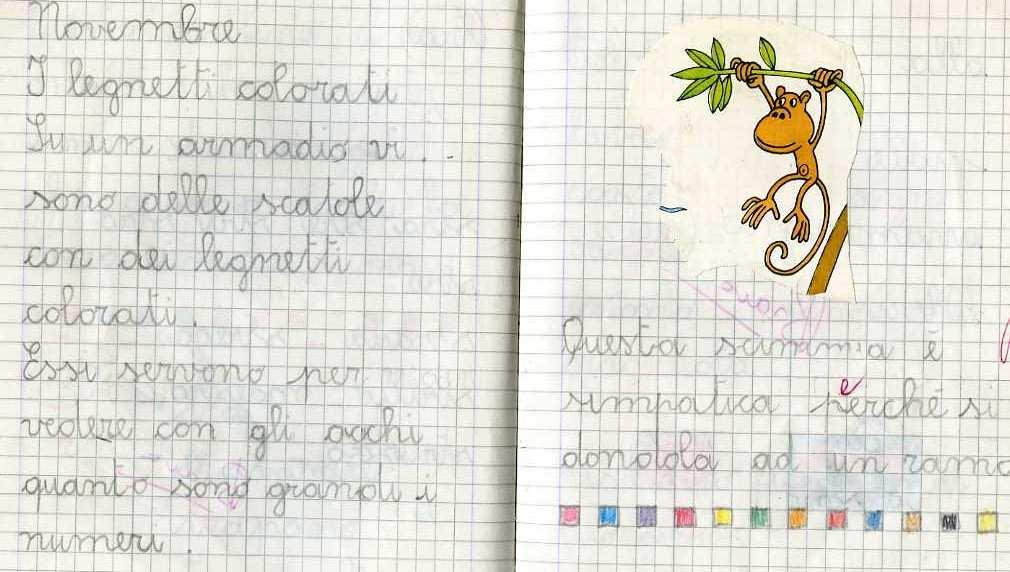 Novembre
I legnetti colorati
In un armadio vi
sono delle scatole
con dei legnetti
colorati.
Essi servono per
vedere con gli occhi
quanto sono grandi i
numeri.
Questa scimmia è
simpatica perché si
dondola ad un ramo